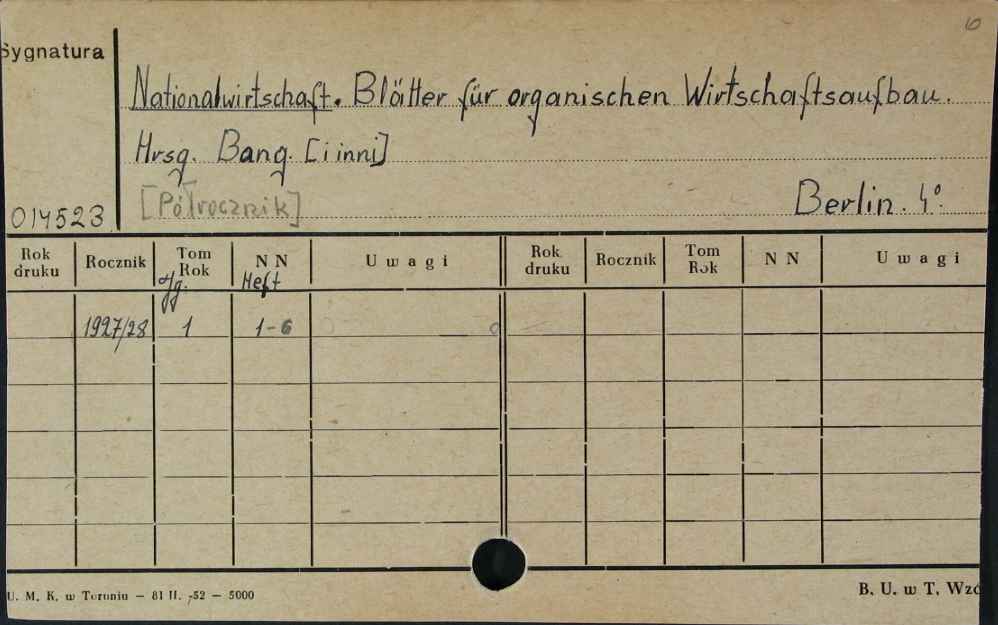 6
Sygnatura
Nationalwirtschaft. Blätter für organischen Wirtschaftsaufbau.
Hrsg. Bang. [i inni]
[Półrocznik] Berlin. 4°.
014523
Rok druku Rocznik Tom Rok N N Uwagi Rok druku Rocznik Tom Rok N N Uwagi
Jg. Heft
1927/28 1 1-6
U. M. K. w Toruniu — 81 II. -52 — 5000
B. U. w T. Wzó